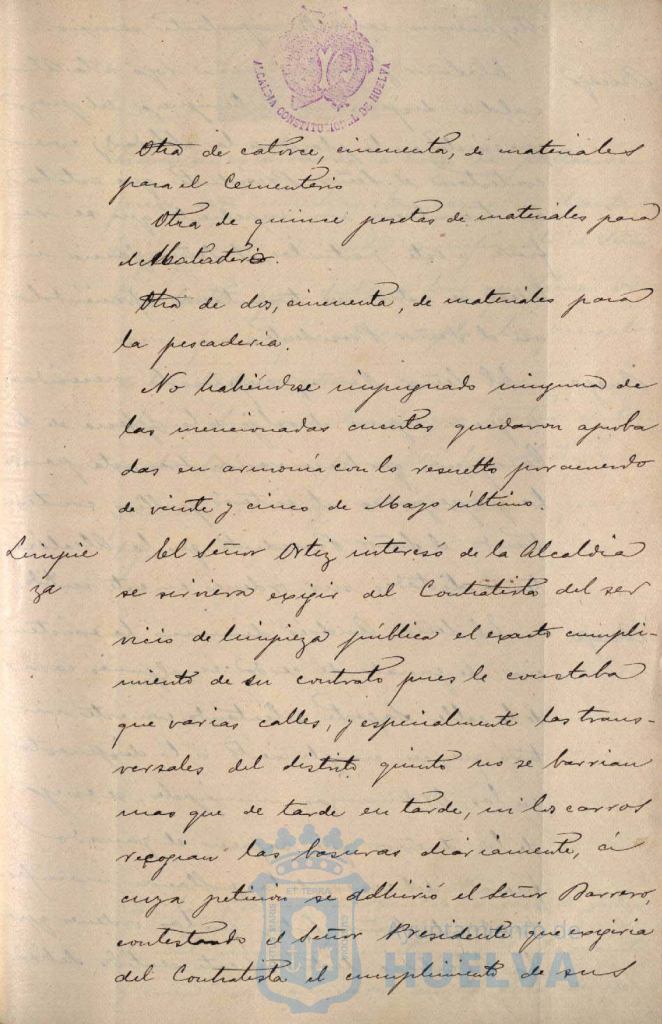 ALCALDIA CONSTITUCIONAL DE HUELVA
Otra de catorce, cincuenta, de materiales
para el Cementerio
Otra de quinse pesetas de materiales para
el Matadero.
Otra de dos, cincuenta, de materiales para
la pescaderia.
No habiéndose impugnado ninguna de
las mencionadas cuentas quedaron aproba
das en armonía con lo resuelto por acuerdo
de veinte y cinco de Mayo último.
Limpie
za
El Señor Ortiz interesó de la Alcaldia
se sirviera exigir del Contratista del ser
vicio de limpieza pública el exacto cumpli-
miento de su contrato pues le constaba
que varias calles, y especialmente las trans-
versales del distrito quinto no se barrian
mas que de tarde en tarde, ni los carros
recogian las basuras diariamente, á
cuya peticion se adhirió el Señor Barrero,
contestando el Señor Presidente que exigiria
del Contratista el cumplimiento de sus
Ayuntamiento de
HUELVA